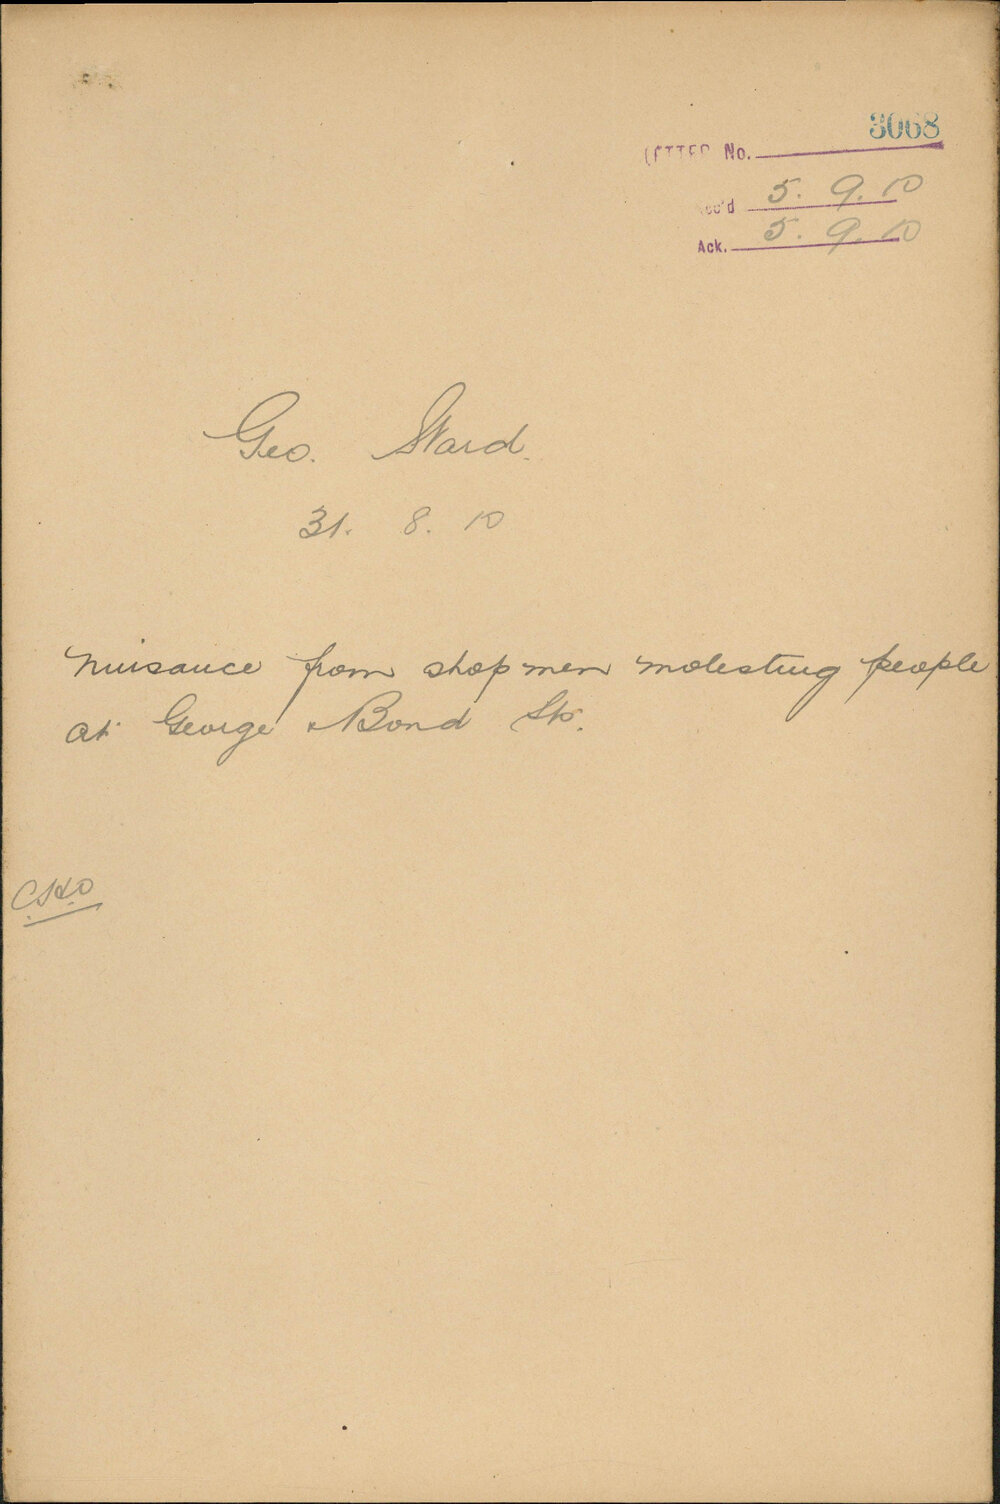 3068
LETTER No.
Rec'd 5. 9. 10
Ack. 5. 9. 10
Geo. Ward.
31. 8. 10
Nuisance from shopmen molesting people
at George & Bond Sts.